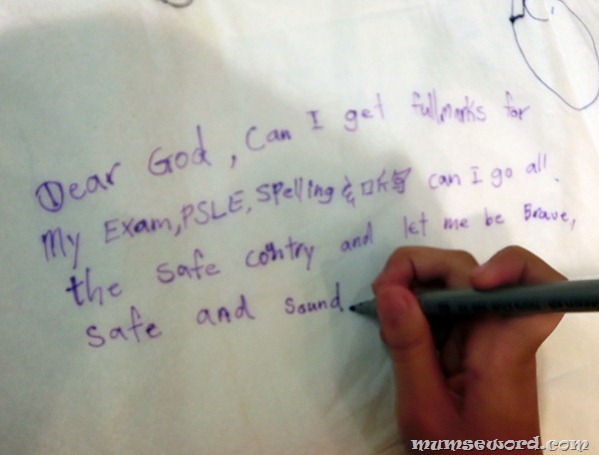 Dear God, Can I get fullmarks for
My Exam, PSLE, Spelling & 听写 can I go all.
the safe contry and let me be Brave,
safe and sound.
mumseword.com